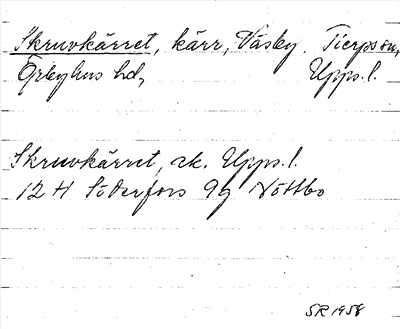 Skruvkärret, kärr, Väsby. Tierps sn,
Örbyhus hd, Upps. l.
Skruvkärret, ek. Upps. l.
12 H Söderfors 9g Nöttbo
SR 1958